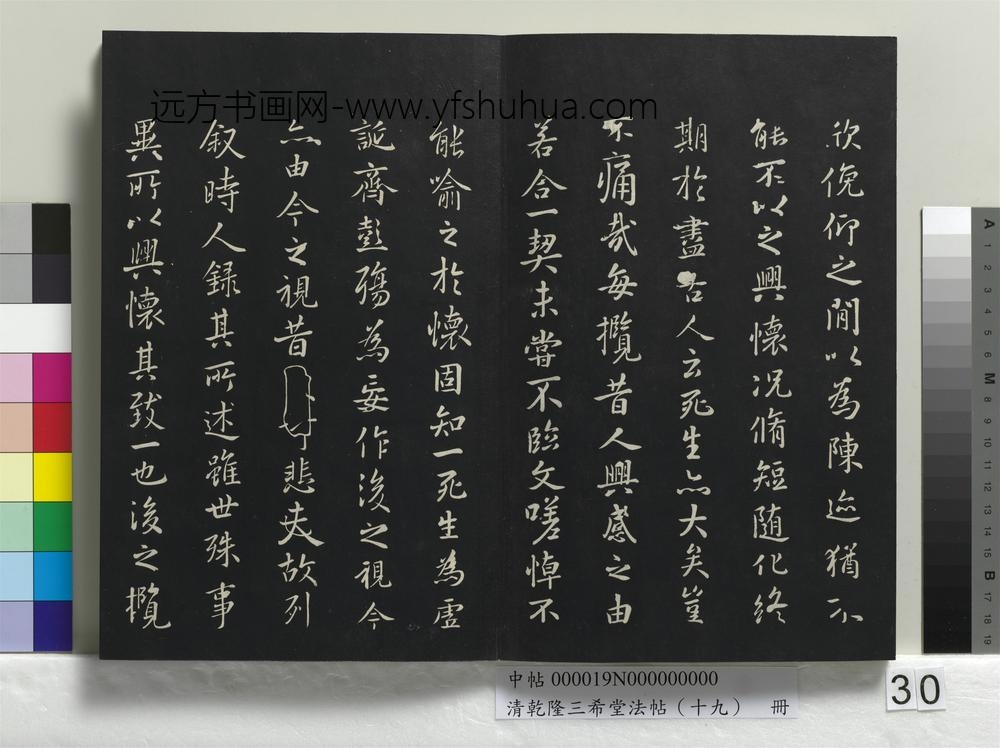 远方书画网-www.yfshuhua.com
欣俛仰之閒以為陳迹猶不
能不以之興懷況脩短隨化終
期於盡古人云死生亦大矣豈
不痛哉每攬昔人興感之由
若合一契未嘗不臨文嗟悼不
能喻之於懷固知一死生為虛
誕齊彭殤為妄作後之視今
亦由今之視昔悲夫故列
叙時人錄其所述雖世殊事
異所以興懷其致一也後之攬
中帖 000019N000000000
清乾隆三希堂法帖（十九） 冊
30
A 1 2 3 4 5 6 M 8 9 10 11 12 13 14 15 B 17 18 19